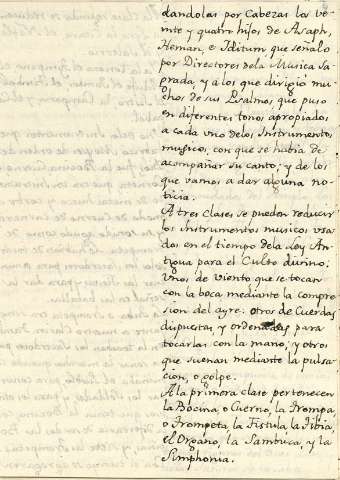 dandolas por Cabezas los ve-
inte y quatro hijos de Asaph,
Heman, e Iditum que señalo
por Directores dela Musica Sa-
grada, y a los que dirigió mu-
chos de sus Psalmos que puso
en diferentes tonos apropiados
a cada vno delos Instrumentos
musicos, con que se habia de
acompañar su canto; y de los
que vamos a dar alguna no-
ticia.
A tres clases se pueden reducir
los instrumentos musicos vsa-
dos en el tiempo dela Ley An-
tigua para el Culto divino.
Vnos de viento que se tocan
con la boca mediante la compre-
sion del ayre: otros de Cuerdas
dispuestas, y ordenadas para
tocarlas con la mano; y otros
que suenan mediante la pulsa-
cion, o golpe.
A la primera clase pertenecen
la Bocina, o Cuerno, la Trompa,
o Trompeta, la Fistula, la Tibia,
el Organo, la Sambuca, y la
Simphonia.